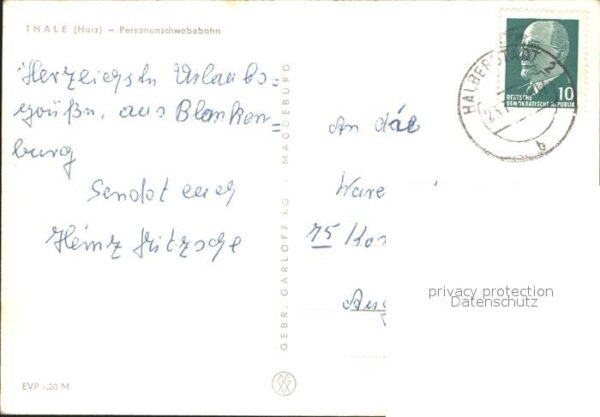 THALE (Harz) – Personenschwebebahn
Herzlichste Urlaubs=
grüße, aus Blanken=
burg
Sendet euch
Heinz Fritzsche
GEBR. GARLOFF KG · MAGDEBURG
EVP -,20 M
HALBERSTADT 2
b
DEUTSCHE
DEMOKRATISCHE REPUBLIK
10
An die
Ware
75
privacy protection
Datenschutz